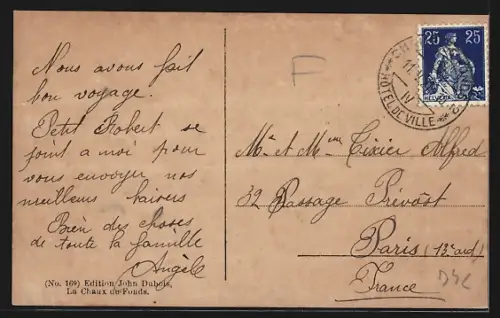 Nous avons fait
bon voyage.
Petit Robert se
joint a moi pour
vous envoyer nos
meilleurs baisers
Bien des choses
de toute la famille
Angèle
(No. 169) Edition John Dubois,
La Chaux-de-Fonds.
F
25 25
HELVETIA
HOTEL DE VILLE
IV
Mr et Mme Tixier Alfred
32 Passage Prévost
Paris (13e ard)
France